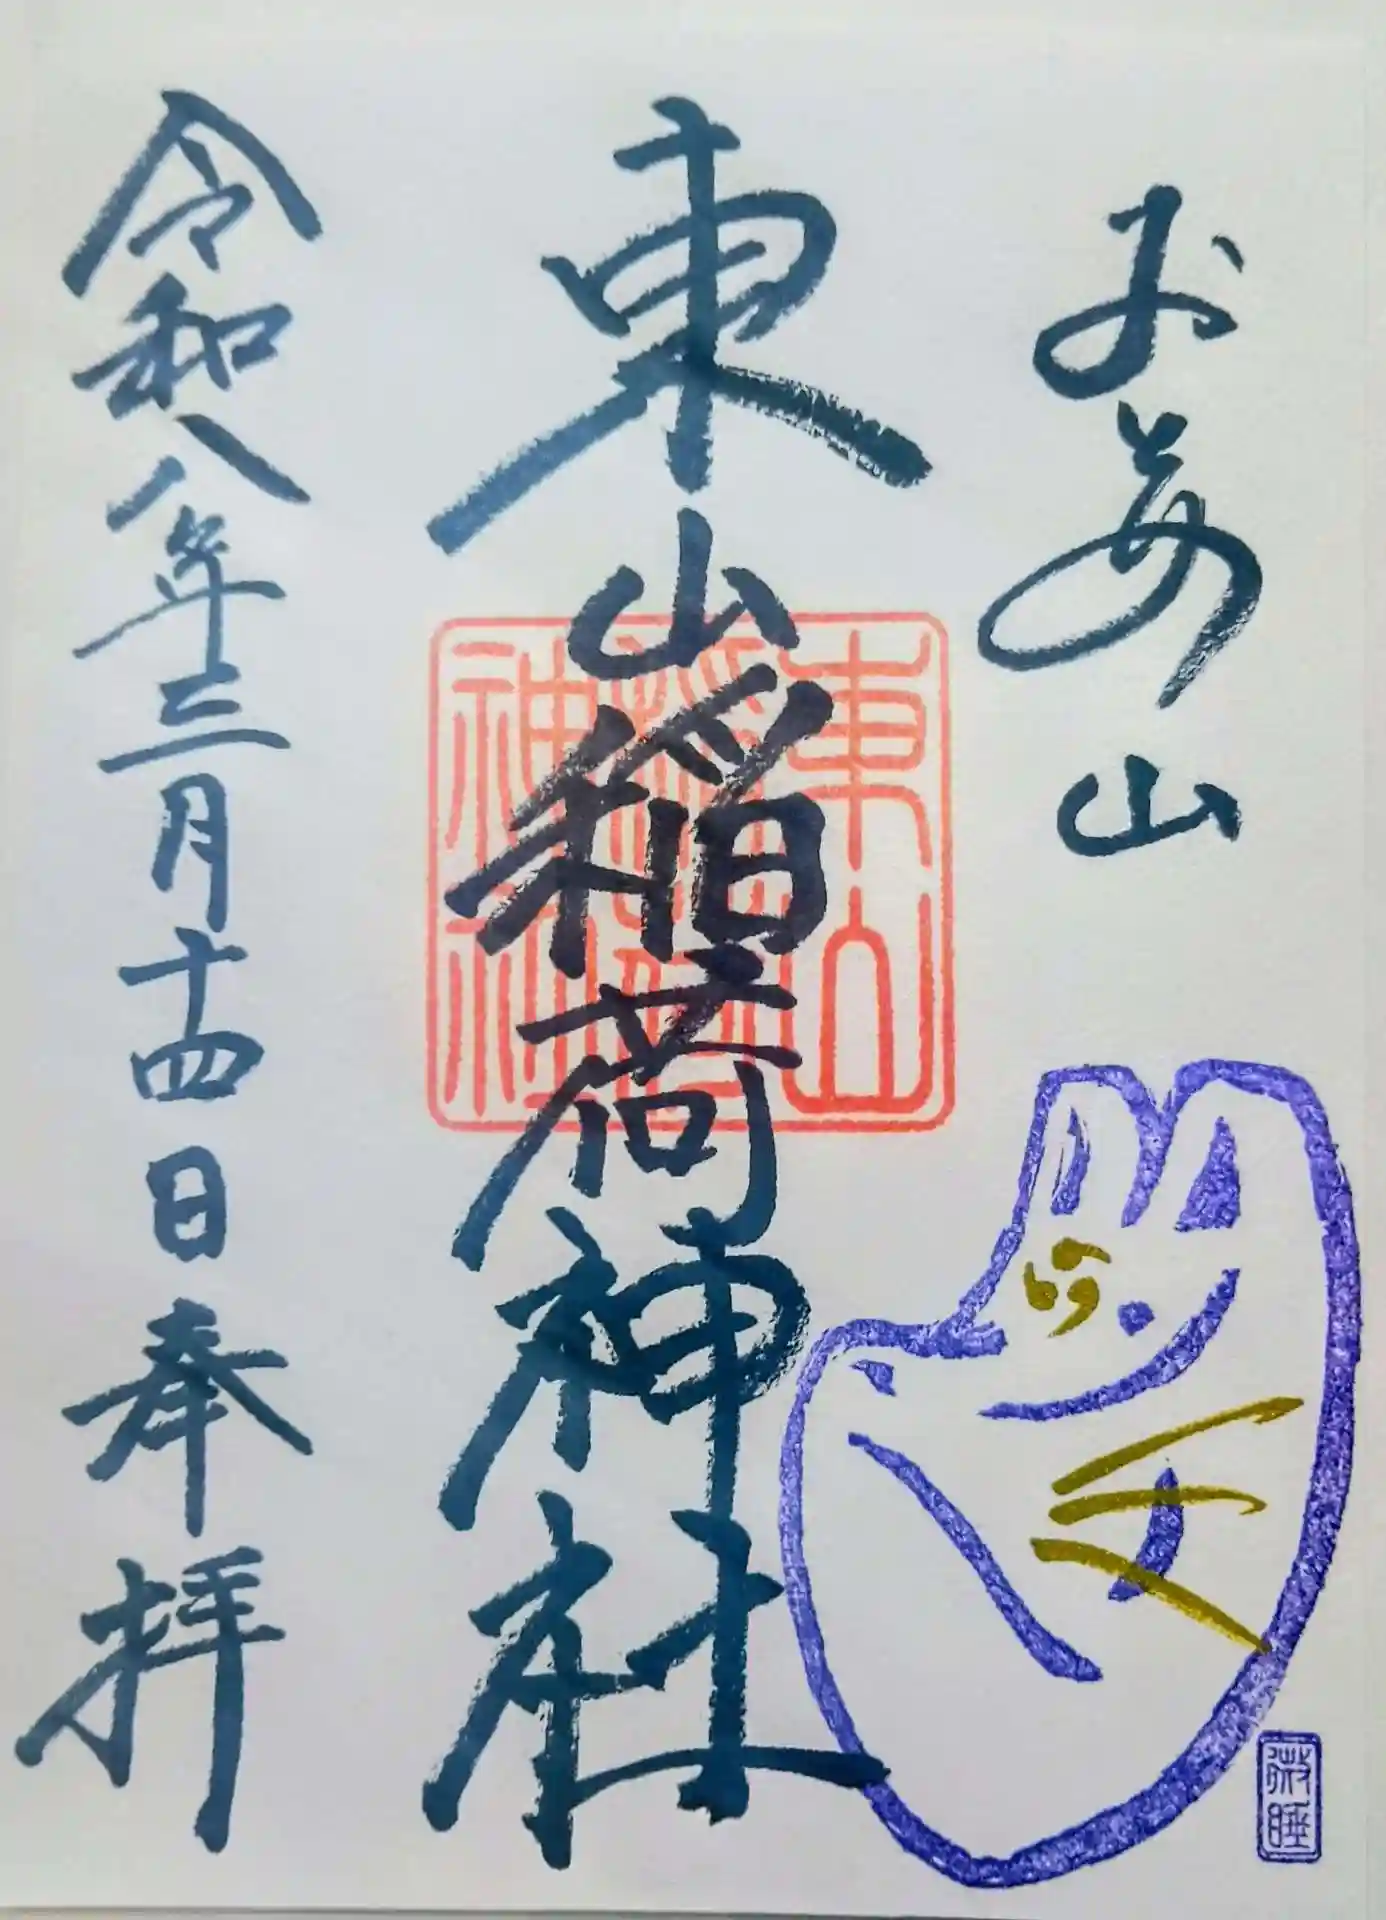 おとめ山
東山稲荷神社
令和八年三月十四日奉拝
東山
神社
微睡